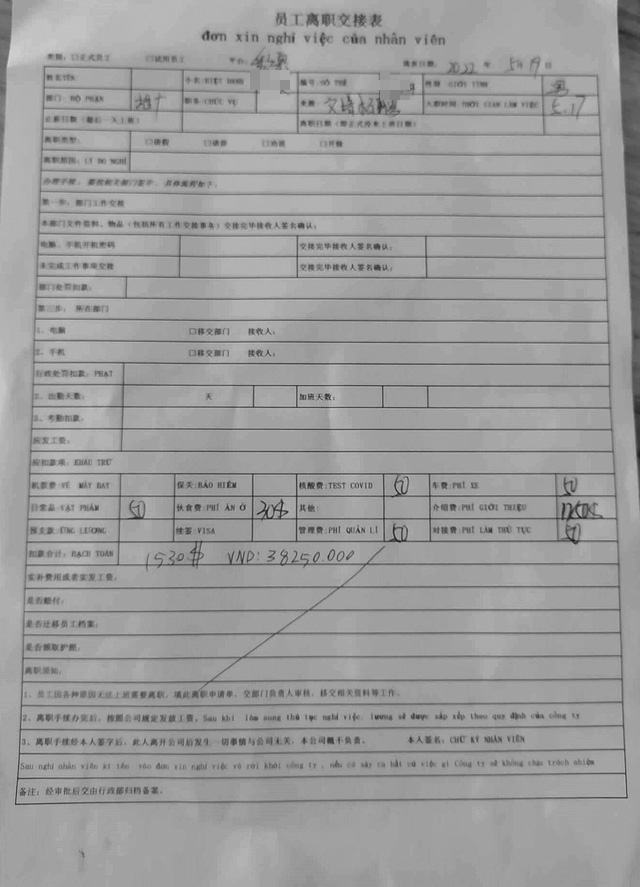 员工离职交接表
đơn xin nghỉ việc của nhân viên
类别: □正式员工 □试用员工 平台: 填表日期: 2022 年 5月19日
姓名TÊN: 小名:BIỆT DANH 编号:SỐ THẺ 性别:GIỚI TÍNH 男
部门:BỘ PHẬN 推广 职务:CHỨC VỤ 来源: 入职时间:THỜI GIAN LÀM VIỆC 5.17
止薪日期(最后一天上班) 离职日期(即正式停来上班日期)
离职类型: □辞职 □辞退 □自离 □开除
离职原因: LÍ DO NGHỈ
办理手续, 需按相关部门签字, 具体流程如下:
第一步: 部门工作交接
本部门文件资料、物品(包括所有工作交接事务)交接完毕接收人签名确认:
电脑、手机开机密码 交接完毕接收人签名确认:
未完成工作事项交接 交接完毕接收人签名确认:
部门处罚扣款:
第三步: 所在部门
1、电脑 □移交部门 接收人:
2、手机 □移交部门 接收人:
行政处罚扣款: PHẠT
2、出勤天数: 天 加班天数:
3、考勤扣款:
应发工资:
应扣款项: KHẤU TRỪ
机票费:VÉ MÁY BAY 保关:BẢO HIỂM 核酸费:TEST COVID 50 车费:PHÍ XE 50
日常品:VẬT PHẨM 50 伙食费:PHÍ ĂN Ở 30$ 其他: 介绍费:PHÍ GIỚI THIỆU 1250$
预支款:ỨNG LƯƠNG 续签:VISA 管理费:PHÍ QUẢN LÍ 50 对接费:PHÍ LÀM THỦ TỤC 50
扣款合计: HẠCH TOÁN 1530$ VND: 38250.000
实补费用或者实发工资:
是否赔付:
是否迁移员工档案:
是否领取护照:
离职须知:
1、员工因各种原因无法上班需要离职, 填此离职申请单、交部门负责人审核, 移交相关资料等工作。
2、离职手续办完后, 按照公司规定发放工资, Sau khi làm xong thủ tục nghỉ việc lương sẽ được sắp xếp theo quy định của công ty
3、离职手续经本人签字后, 此人离开公司后发生一切事情与公司无关, 本公司概不负责。 本人签名: CHỮ KÝ NHÂN VIÊN
Sau nghỉ nhân viên kí tên vào đơn xin nghỉ việc và rời khỏi công ty , nếu có xảy ra bất cứ việc gì Công ty sẽ không chịu trách nhiệm
备注: 经审批后交由行政部归档备案。